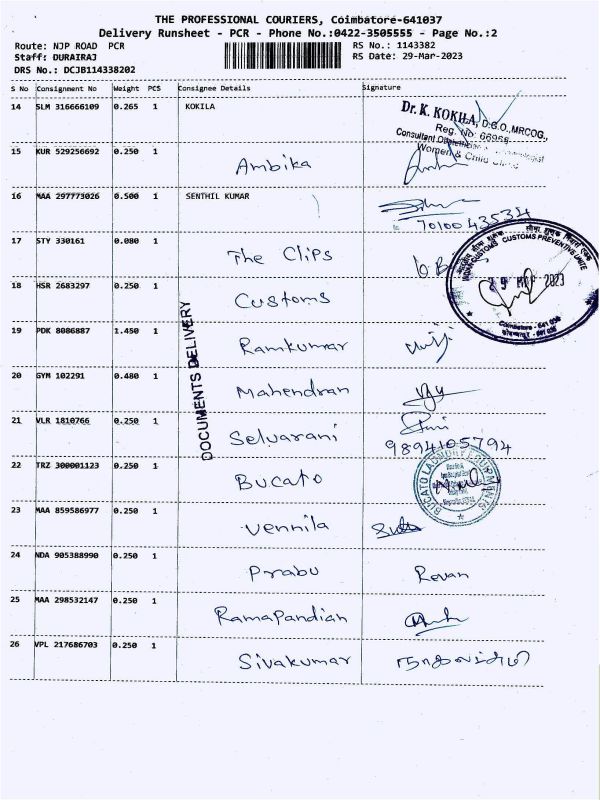 THE PROFESSIONAL COURIERS, Coimbatore-641037
Delivery Runsheet - PCR - Phone No.:0422-3505555 - Page No.:2
Route: NJP ROAD PCR
RS No.: 1143382
Staff: DURAIRAJ
RS Date: 29-Mar-2023
DRS No.: DCJB114338202
S No Consignment No Weight PCS Consignee Details Signature
14 SLM 316666109 0.265 1 KOKILA
Dr. K. KOKILA, D.G.O., MRCOG.,
Reg. No: 66966
Consultant
Women & Child
15 KUR 529256692 0.250 1 Ambika
16 MAA 297773026 0.500 1 SENTHIL KUMAR
7010043534
17 STY 330161 0.080 1 The Clips
INDIAN CUSTOMS CUSTOMS PREVENTIVE UNITE
29 MAR 2023
Coimbatore - 641 018
18 HSR 2683297 0.250 1 Customs
19 PDK 8086887 1.450 1 Ramkumar
DOCUMENTS DELIVERY
20 GYM 102291 0.480 1 Mahendran
21 VLR 1810766 0.250 1 Selvarani
9894105794
22 TRZ 300001123 0.250 1 Bucato
BUCATO LAUNDRY EQUIPMENTS
23 MAA 859586977 0.250 1 Vennila
24 NDA 905388990 0.250 1 Prabu Revan
25 MAA 298532147 0.250 1 Ramapandian
26 VPL 217686703 0.250 1 Sivakumar